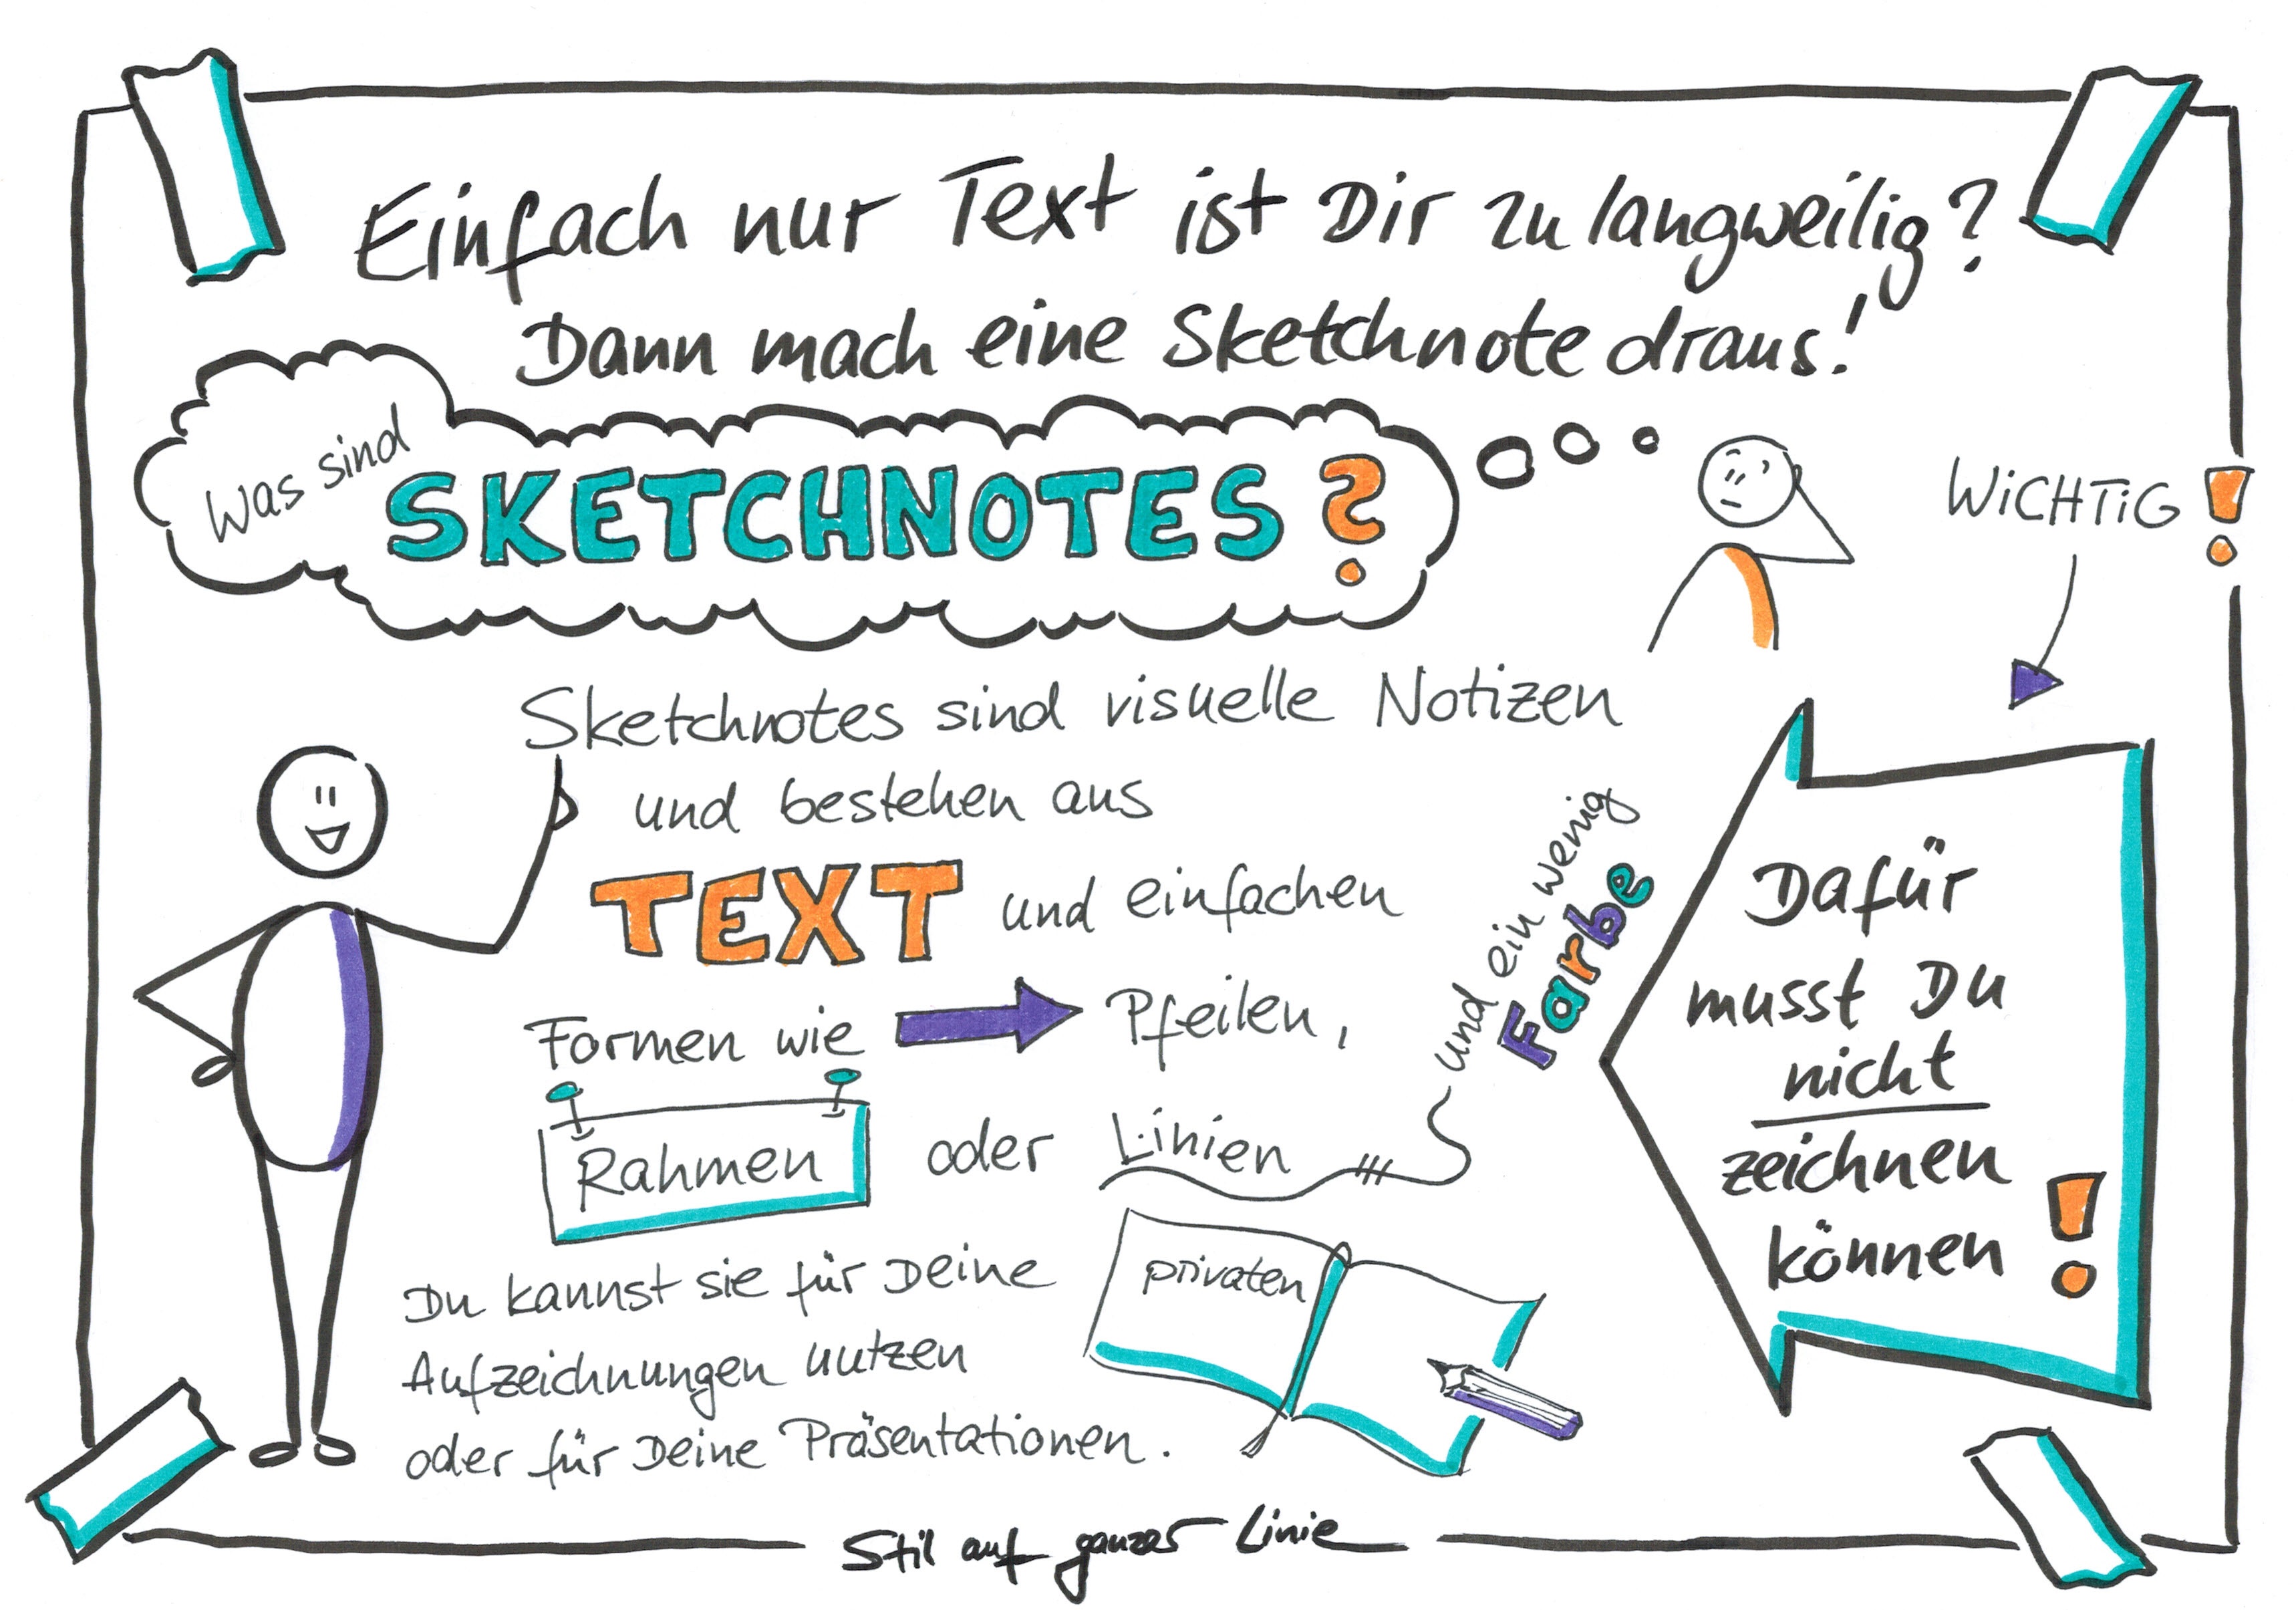 Einfach nur Text ist Dir zu langweilig?
Dann mach eine Sketchnote draus!
Was sind
SKETCHNOTES?
WiCHTiG!
Sketchnotes sind visuelle Notizen
und bestehen aus
TEXT und einfachen
Formen wie Pfeilen,
Rahmen oder Linien
und ein wenig
Farbe
Du kannst sie für Deine privaten
Aufzeichnungen nutzen
oder für Deine Präsentationen.
Dafür
musst Du
nicht
zeichnen
können!
Stil auf ganzer Linie